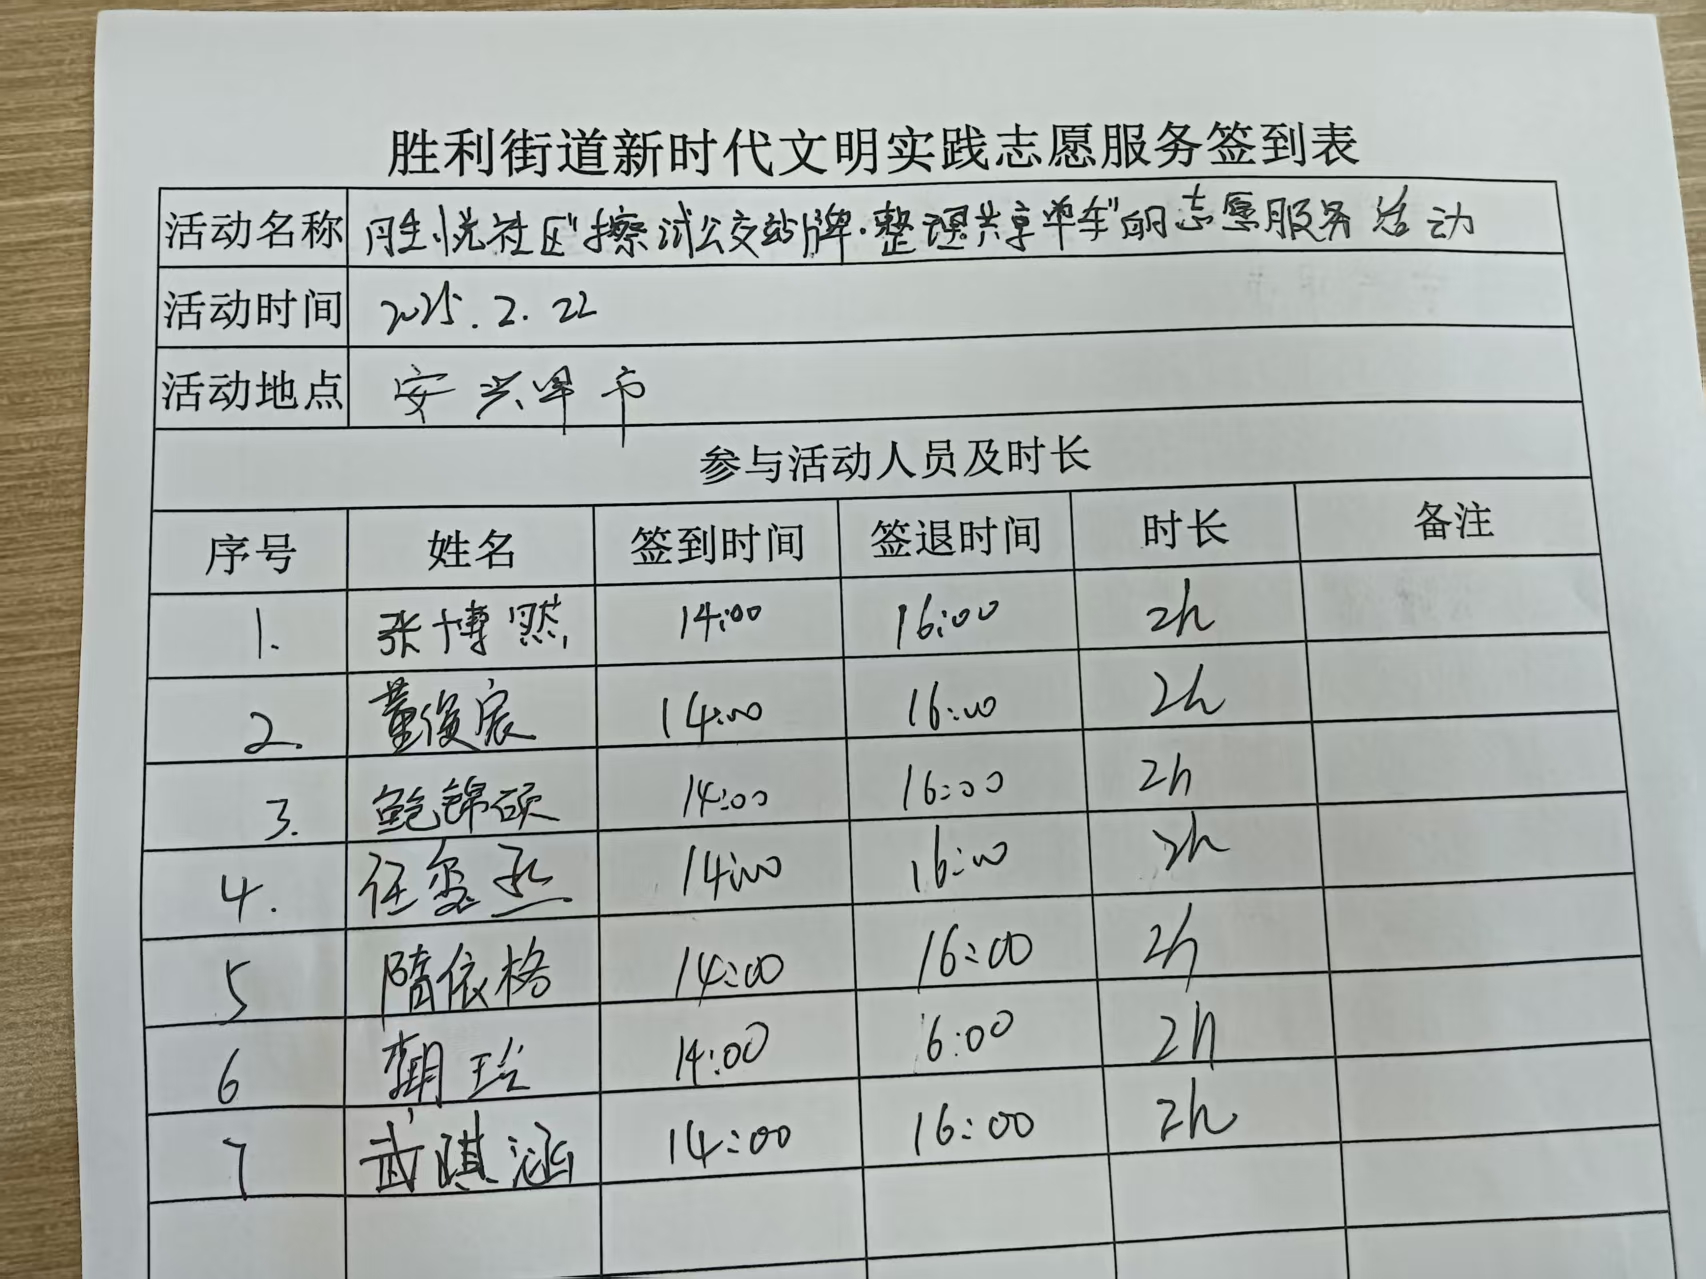 胜利街道新时代文明实践志愿服务签到表
活动名称 胜悦社区"擦试公交站牌·整理共享单车"的志愿服务活动
活动时间 2025.2.22
活动地点 安兴早市
参与活动人员及时长
序号 姓名 签到时间 签退时间 时长 备注
1. 张博熙 14:00 16:00 2h
2. 董俊宸 14:00 16:00 2h
3. 鲍锦硕 14:00 16:00 2h
4. 任玺丞 14:00 16:00 2h
5 隋依格 14:00 16:00 2h
6 14:00 16:00 2h
7 武淇涵 14:00 16:00 2h